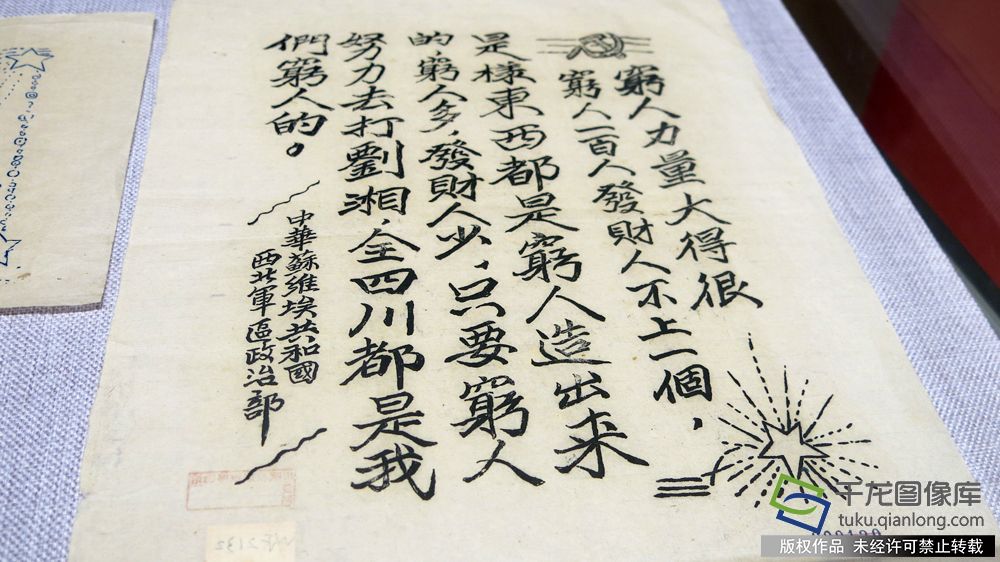 窮人力量大得很
窮人一百人發財人不上一個，
是樣東西都是窮人造出来
的，窮人多，發財人少，只要窮人
努力去打劉湘，全四川都是我
們窮人的。
中華蘇維埃共和國
西北軍區政治部
千龙图像库
tuku.qianlong.com
版权作品 未经许可禁止转载